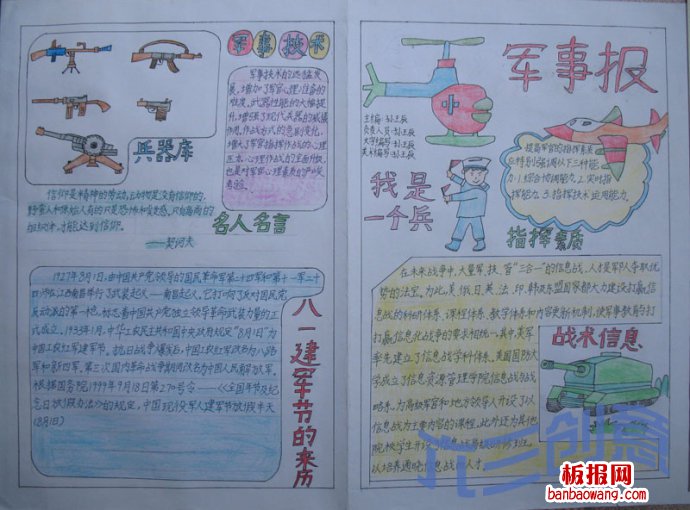 军事技术
军事技术的迅猛发
展,增加了军官心理准备的
难度。武器性能的大幅提
升,增强了现代兵器的威慑
作用,作战方式的急剧变化,
增大了军官指挥作战的心理
压力,心理作战的全面升级,
也是对军官心理素质的严峻
考验。
兵器库
信仰是精神的劳动,动物是没有信仰的,
野蛮人和原始人有的只是恐怖和疑惑。只有高尚的
组织体,才能达到信仰。
——契诃夫
名人名言
1927年8月1日,由中国共产党领导的国民革命军第二十四军和第十一军二十
四师在江西南昌举行了武装起义——南昌起义,它打响了反对国民党
反动派的第一枪,标志着中国共产党独立领导革命武装力量的正
式成立。1933年7月,中华工农民主共和国中央政府规定"8月1日"为
中国工农红军建军节。抗日战争爆发后,中国工农红军改名为八路
军和新四军,第三次国内革命战争期间改名为中国人民解放军。
根据国务院1999年9月18日第270号令——《全国年节及纪
念日放假办法》的规定,中国现役军人建军节放假半天
(8月1日)
八一建军节的来历
军事报
主编:
负责人员:
文字编写:
美术编写:
我是
一个兵
提高军官的指挥素质
应特别强调以下三种能
力:1.综合协调能力,2.实时指
挥能力,3.指挥技术运用能力。
指挥素质
在未来战争中,大量军、技、官"三合一"的信息战,人才是军队夺取优
势的法宝。为此,美、俄、日、英、法、印、韩及东盟国家都大力建设打赢信
息战的科研体系、课程体系、教学体系和内容更新机制,使军事教育与打
打赢信息化战争的要求相统一。其中,美军
率先建立了信息战学科体系,美国国防大
学成立了信息资源管理学院信息战与战
略系,为高级军官和地方领导人开设了以
信息战为主要内容的课程。此外还为其他
院校学生开设了信息战高级研讨班,
以培养通晓信息战的人才。
战术信息
六三创意
板报网
banbaowang.com